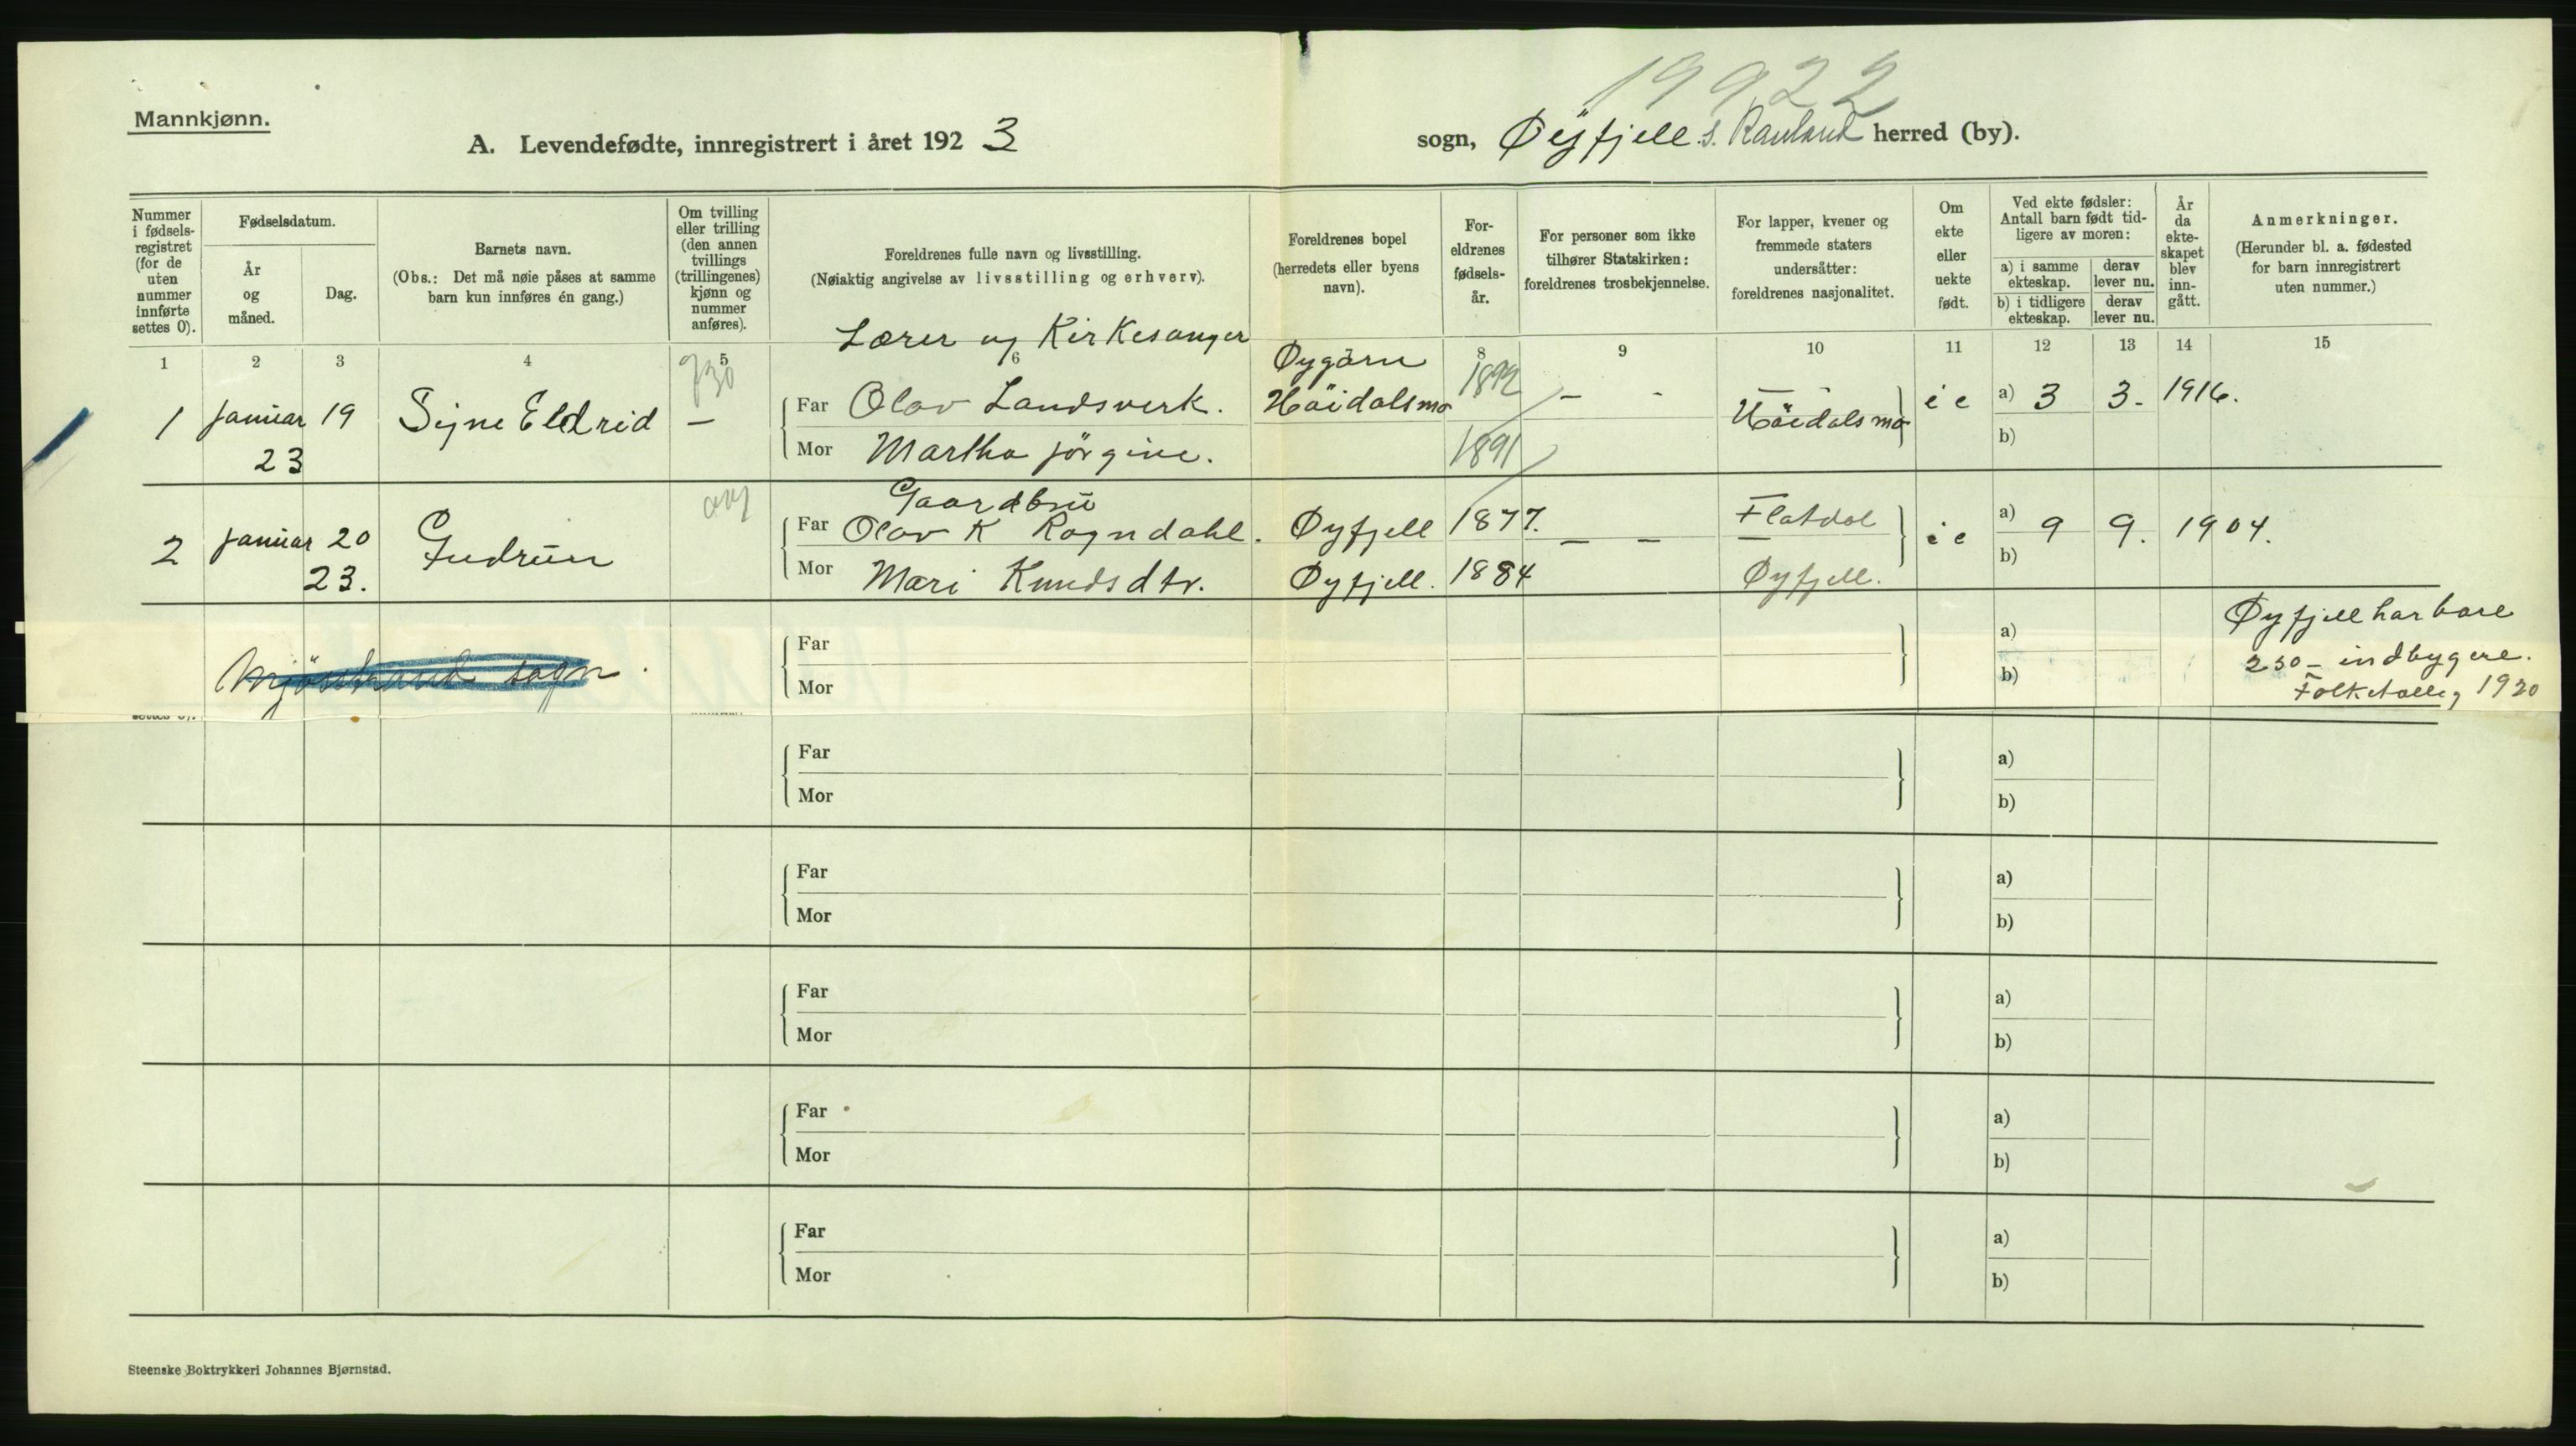 19922
Mannkjønn.
A. Levendefødte, innregistrert i året 1923
sogn, Øyfjell s. Rauland herred (by).
Nummer i fødsels-registret (for de uten nummer innførte settes 0).
Fødselsdatum.
År og måned.
Dag.
Barnets navn.
(Obs.: Det må nøie påses at samme barn kun innføres én gang.)
Om tvilling eller trilling (den annen tvillings (trillingenes) kjønn og nummer anføres).
Foreldrenes fulle navn og livsstilling.
(Nøiaktig angivelse av livsstilling og erhverv).
Foreldrenes bopel (herredets eller byens navn).
For-eldrenes fødsels-år.
For personer som ikke tilhører Statskirken: foreldrenes trosbekjennelse.
For lapper, kvener og fremmede staters undersåtter: foreldrenes nasjonalitet.
Om ekte eller uekte født.
Ved ekte fødsler: Antall barn født tid-ligere av moren:
a) i samme ekteskap.
derav lever nu.
b) i tidligere ekteskap.
derav lever nu.
År da ekte-skapet blev inn-gått.
Anmerkninger.
(Herunder bl. a. fødested for barn innregistrert uten nummer.)
1 2 3 4 5 6 8 9 10 11 12 13 14 15
Lærer og Kirkesanger
730
Øygårn
1 januar 19 Signe Eldrid —
Far Olav Landsverk. Høidalsmo 1892 — - Høidalsmo i e a) 3 3. 1916.
23
Mor Martha Jørgine. 1891 b)
Gaardbru
2 januar 20 Gudrun
Far Olav K Rogndahl. Øyfjell 1877. — — Flatdal i e a) 9 9. 1904.
23.
Mor Mari Knudsdtr. Øyfjell. 1884 Øyfjell. b)
Mjösstrand sogn.
Far a)
Mor b)
Øyfjell har bare
250 - indbygere.
Folketallig 1920
settes 0).
Far a)
Mor b)
Far a)
Mor b)
Far a)
Mor b)
Far a)
Mor b)
Far a)
Mor b)
Steenske Boktrykkeri Johannes Bjørnstad.